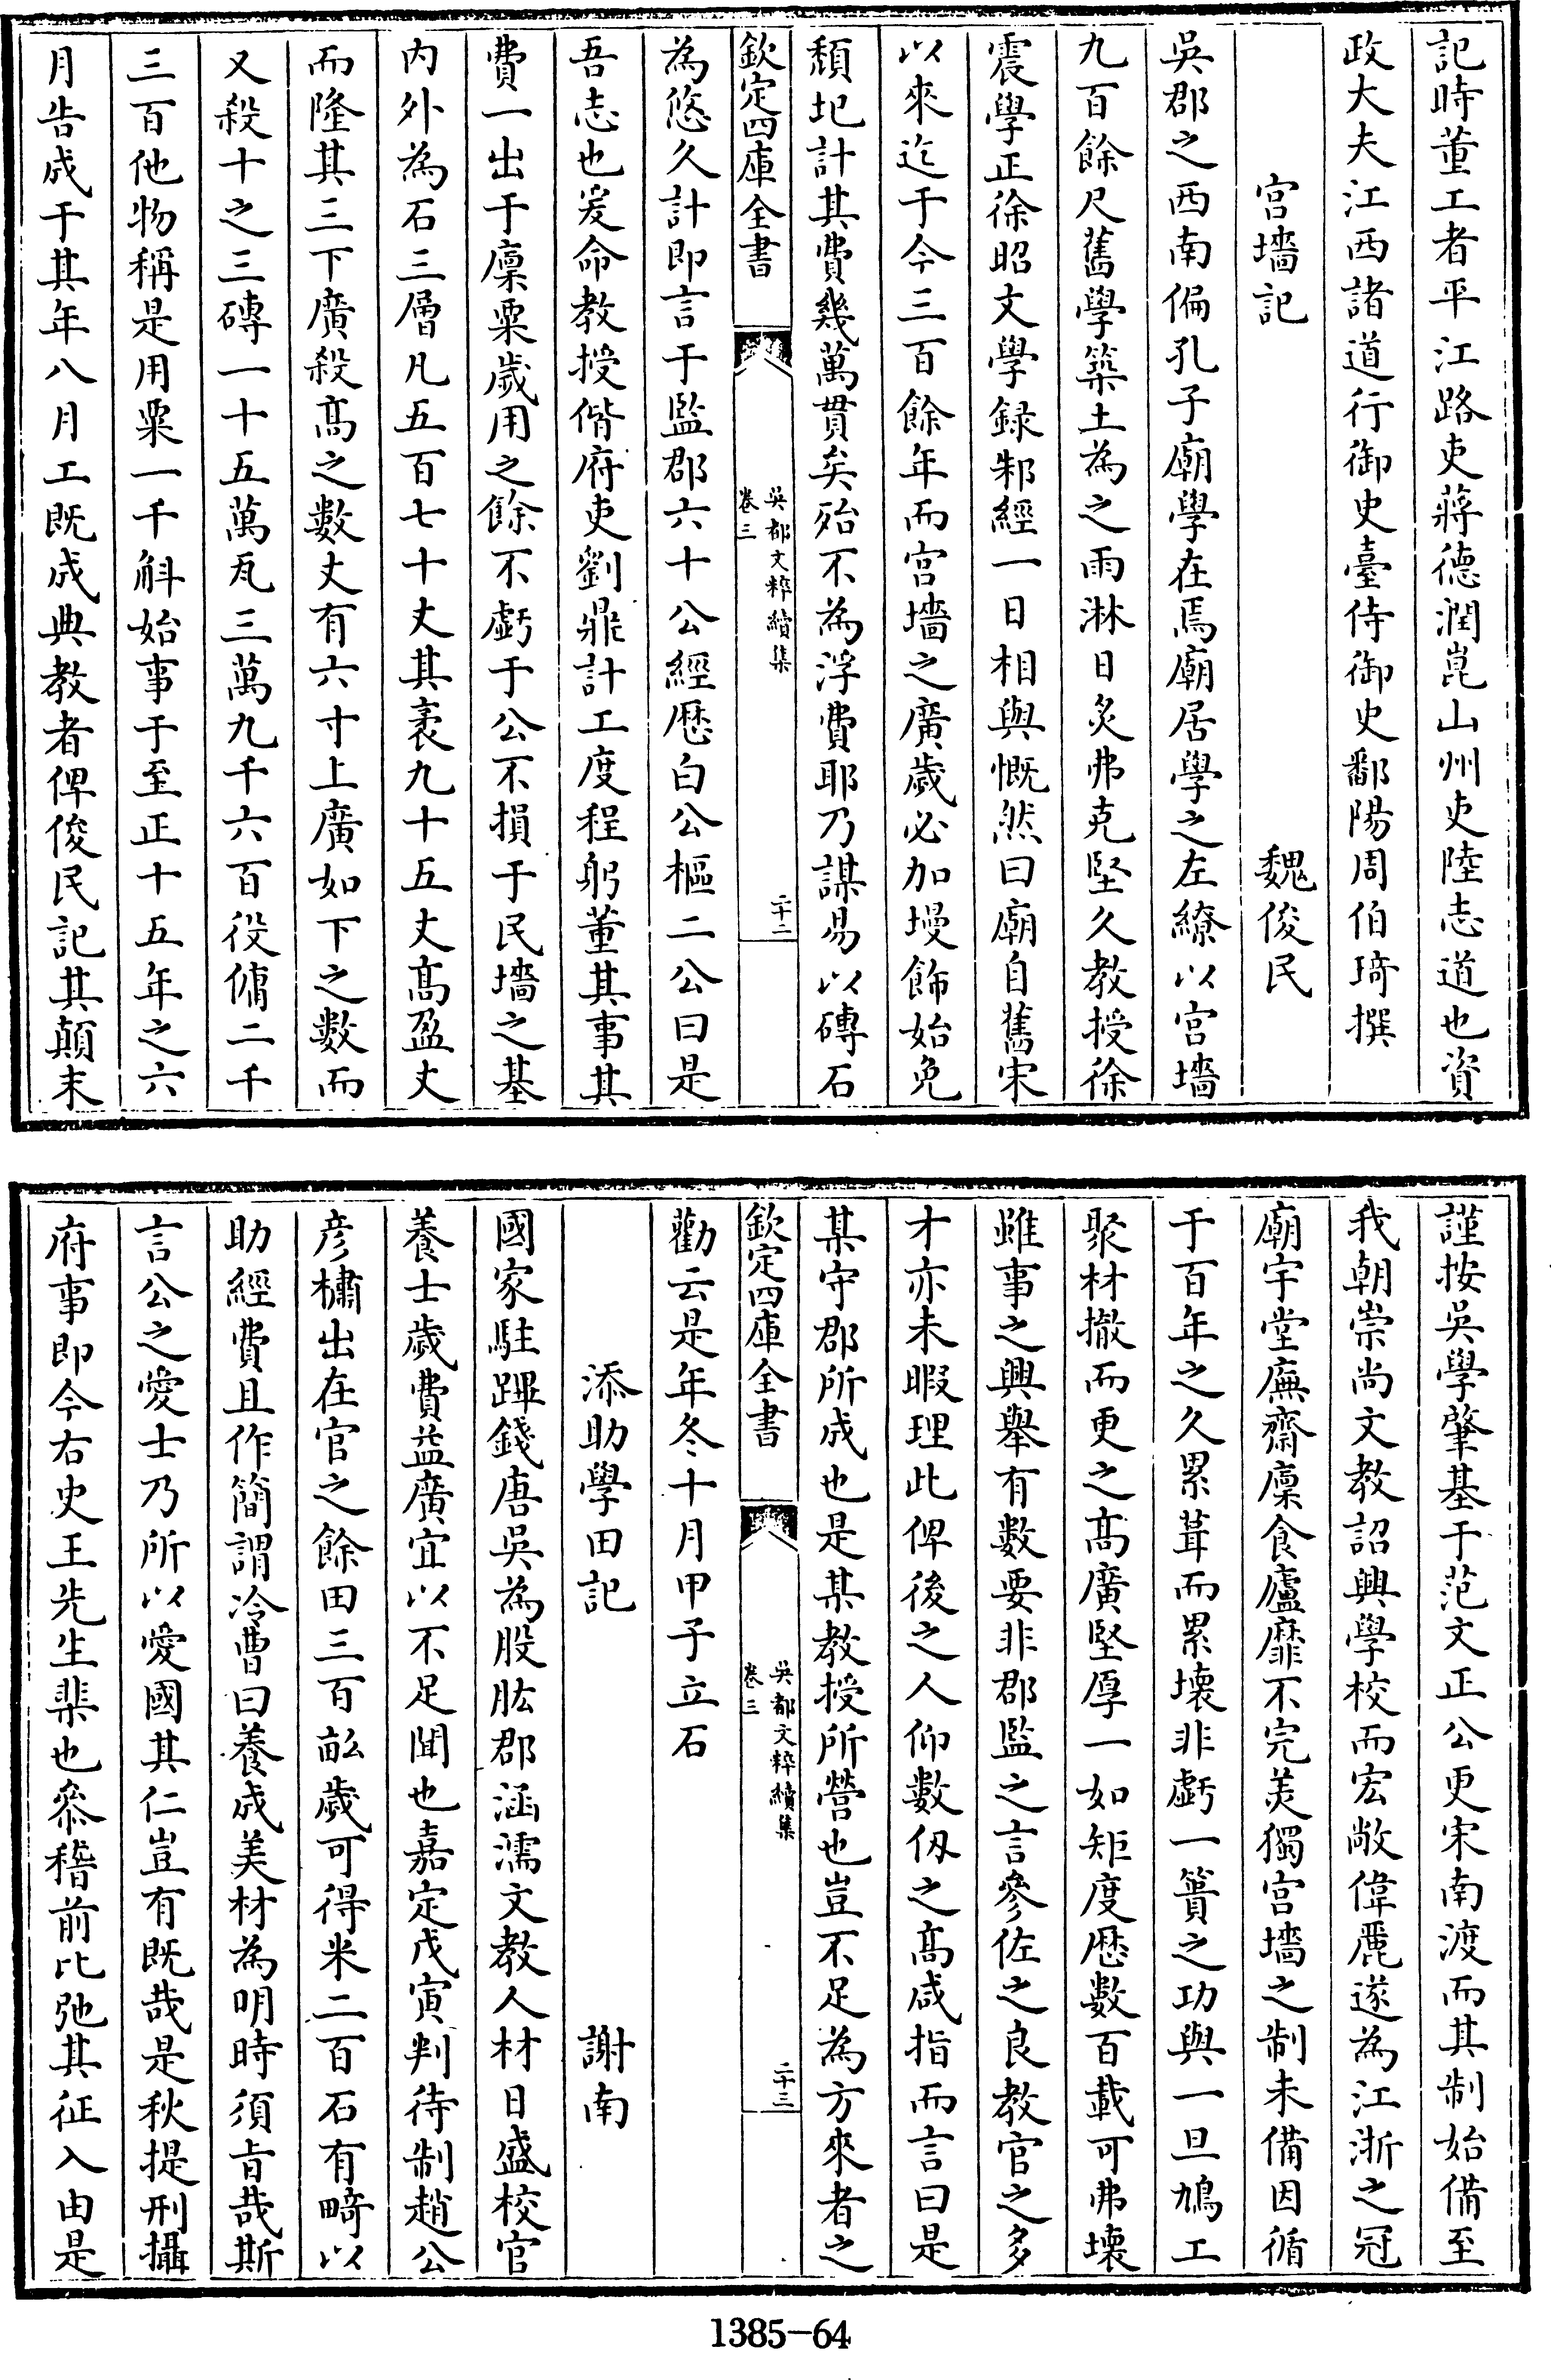 記時董工者平江路吏蔣德潤崑山州吏陸志道也資
政大夫江西諸道行御史臺侍御史鄱陽周伯琦撰
宮墻記　魏俊民
吳郡之西南偏孔子廟學在焉廟居學之左繚以宮墻
九百餘尺舊學築土為之雨淋日炙弗克堅久教授徐
震學正徐昭文學録邾經一日相與慨然曰廟自舊宋
以來迄于今三百餘年而宮墻之廣歲必加墁飾始免
頽圮計其費幾萬貫矣殆不為浮費耶乃謀易以磚石
欽定四庫全書
吳都文粹續集
卷三
二十二
為悠久計即言于監郡六十公經歷白公樞二公曰是
吾志也爰命教授偕府吏劉鼎計工度程躬董其事其
費一出于廩粟歲用之餘不虧于公不損于民墻之基
内外為石三層凡五百七十丈其袤九十五丈髙盈丈
而隆其三下廣殺髙之數丈有六寸上廣如下之數而
又殺十之三磚一十五萬瓦三萬九千六百役傭二千
三百他物稱是用粟一千斛始事于至正十五年之六
月告成于其年八月工既成典教者俾俊民記其顛末
謹按吳學肇基于范文正公更宋南渡而其制始備至
我朝崇尚文教詔興學校而宏敞偉麗遂為江浙之冠
廟宇堂廡齋廩食廬靡不完美獨宮墻之制未備因循
于百年之久累葺而累壊非虧一簣之功與一旦鳩工
聚材撤而更之髙廣堅厚一如矩度歷數百載可弗壊
雖事之興舉有數要非郡監之言參佐之良教官之多
才亦未暇理此俾後之人仰數仭之髙咸指而言曰是
某守郡所成也是某教授所營也豈不足為方來者之
欽定四庫全書
吳都文粹續集
卷三
二十三
勸云是年冬十月甲子立石
添助學田記　謝南
國家駐蹕錢唐吳為股肱郡涵濡文教人材日盛校官
養士歲費益廣宜以不足聞也嘉定戊寅判待制趙公
彦橚出在官之餘田三百畝歲可得米二百石有畸以
助經費且作簡謂冷曹曰養成美材為明時須旨哉斯
言公之愛士乃所以愛國其仁豈有既哉是秋提刑攝
府事即今右史王先生棐也叅稽前比弛其征入由是
1385-64